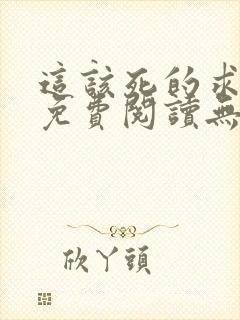 這該死的求
免費閱讀無
欣丫頭